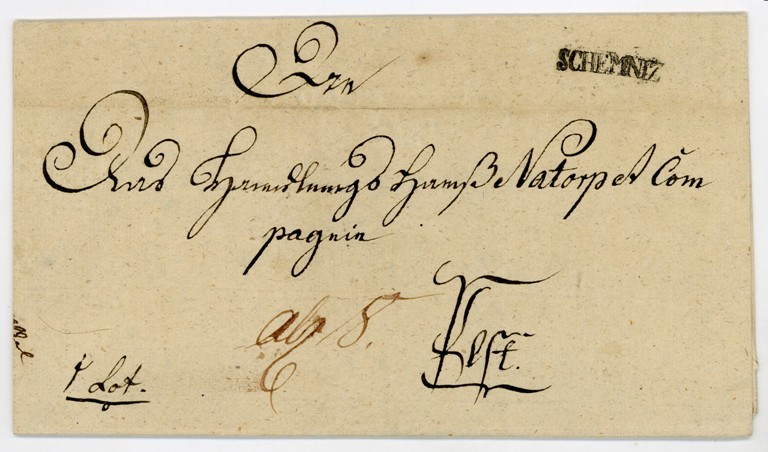 SCHEMNIZ
An
Das Handlungs Hauß Natorp et Com
pagnie
Pest.
1 Lot.